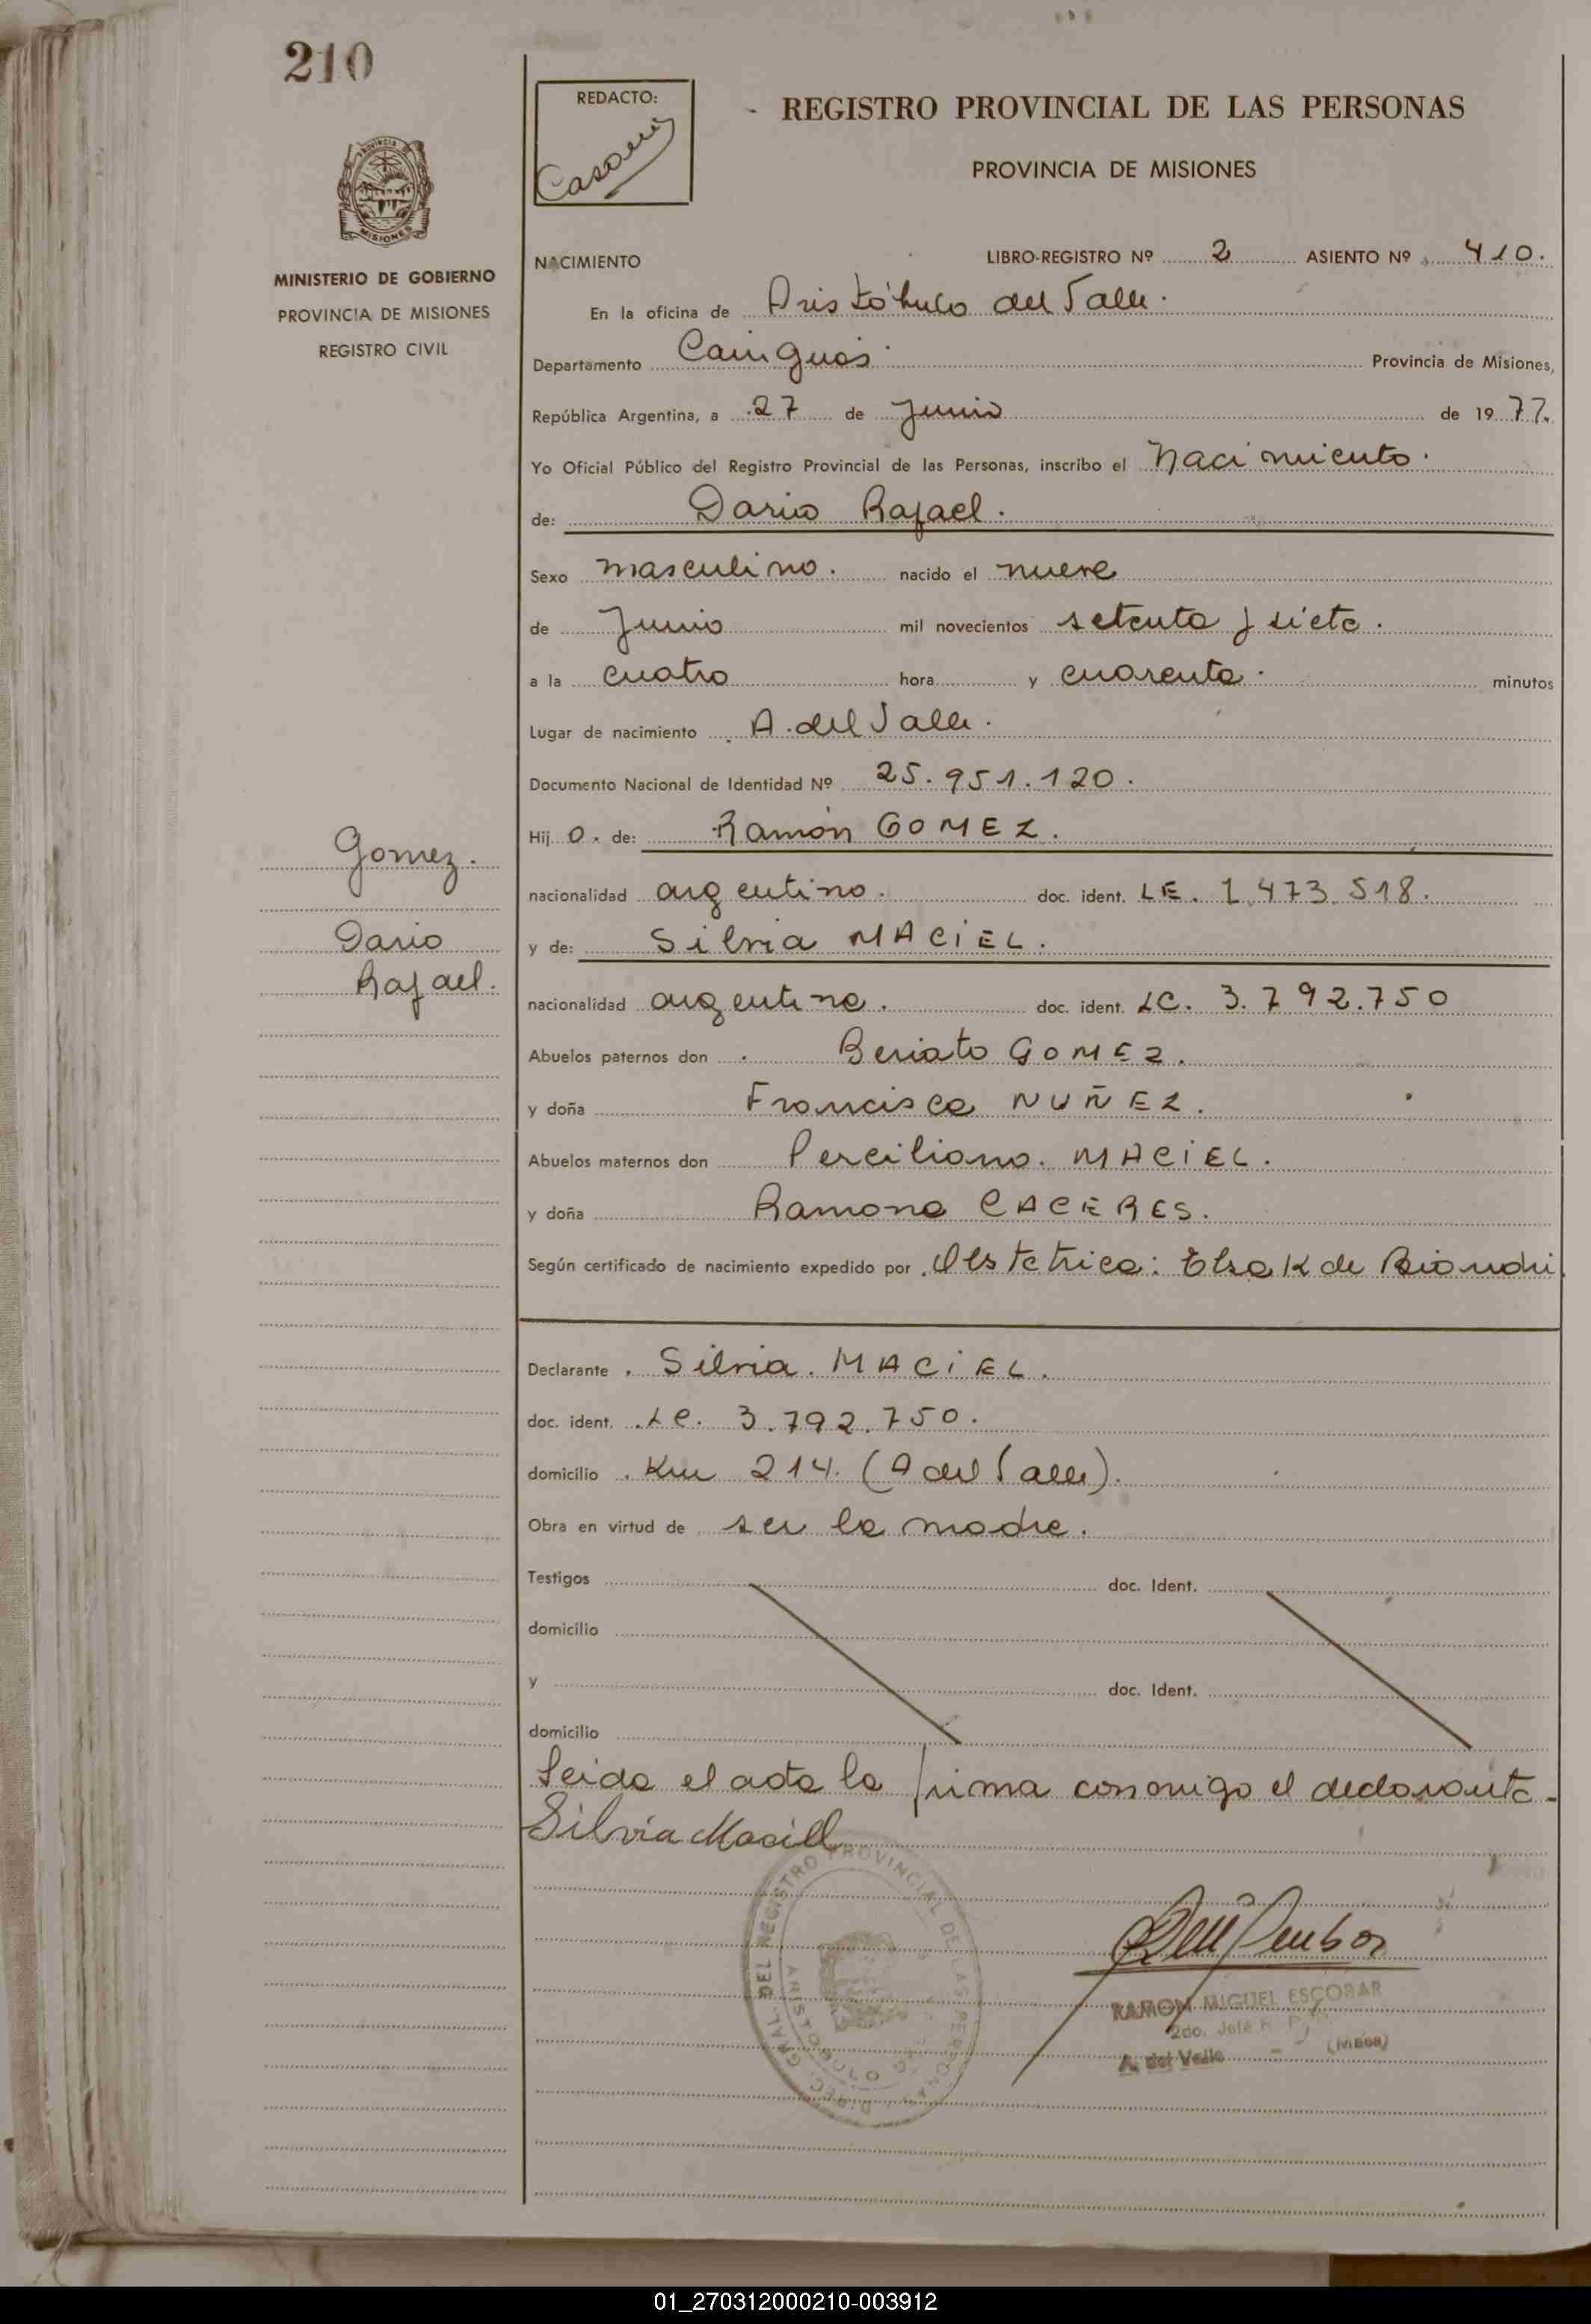 210
REDACTO:
REGISTRO PROVINCIAL DE LAS PERSONAS
PROVINCIA DE MISIONES
MISIONES
MINISTERIO DE GOBIERNO
PROVINCIA DE MISIONES
REGISTRO CIVIL
NACIMIENTO LIBRO-REGISTRO Nº 2 ASIENTO Nº 410.
En la oficina de Aristóbulo del Valle.
Departamento Cainguás. Provincia de Misiones,
República Argentina, a 27 de Junio de 1977.
Yo Oficial Público del Registro Provincial de las Personas, inscribo el Nacimiento.
de: Dario Rafael.
Sexo masculino. nacido el nueve
de Junio mil novecientos setenta y siete.
a la cuatro hora y cuarenta. minutos
Lugar de nacimiento A. del Valle.
Documento Nacional de Identidad Nº 25.951.120.
Hij o. de: Ramón GOMEZ.
nacionalidad argentino. doc. ident. LE. 1.473.518.
y de: Silvia MACIEL.
nacionalidad argentina. doc. ident. LC. 3.792.750
Gomez.
Dario
Rafael.
Abuelos paternos don Beriato GOMEZ.
y doña Francisca NUÑEZ.
Abuelos maternos don Perciliano. MACIEL.
y doña Ramona CACERES.
Según certificado de nacimiento expedido por Obstetrica: Elsa K de Biondi
Declarante Silvia. MACIEL.
doc. ident. LC. 3.792.750.
domicilio Km 214. (A del Valle).
Obra en virtud de ser la madre.
Testigos doc. Ident.
domicilio
y doc. Ident.
domicilio
Leida el acta la firma conmigo el declarante.
Silvia Maciel
DIREC. GRAL. DEL REGISTRO PROVINCIAL DE LAS PERSONAS
RAMON MIGUEL ESCOBAR
2do. Jefe R. P.
A. del Valle (Mnes)
01_270312000210-003912